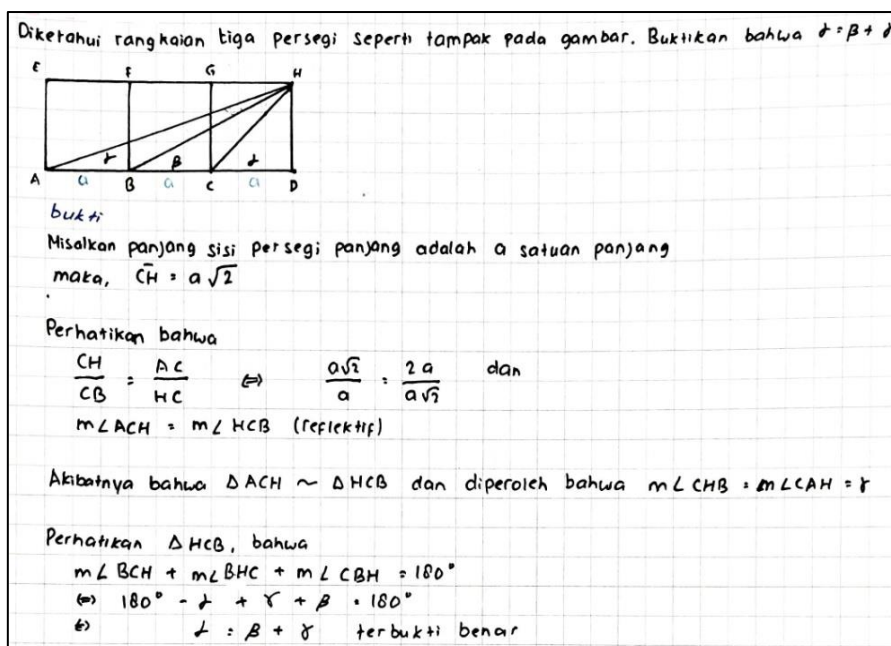 Diketahui rangkaian tiga persegi seperti tampak pada gambar. Buktikan bahwa α = β + γ
E F G H
γ β α
A a B a C a D
bukti
Misalkan panjang sisi persegi panjang adalah a satuan panjang
maka, CH = a√2
Perhatikan bahwa
CH/CB = AC/HC ⇔ a√2/a = 2a/a√2 dan
m∠ACH = m∠HCB (reflektif)
Akibatnya bahwa ΔACH ~ ΔHCB dan diperoleh bahwa m∠CHB = m∠CAH = γ
Perhatikan ΔHCB, bahwa
m∠BCH + m∠BHC + m∠CBH = 180°
⇔ 180° - α + γ + β = 180°
⇔ α = β + γ terbukti benar